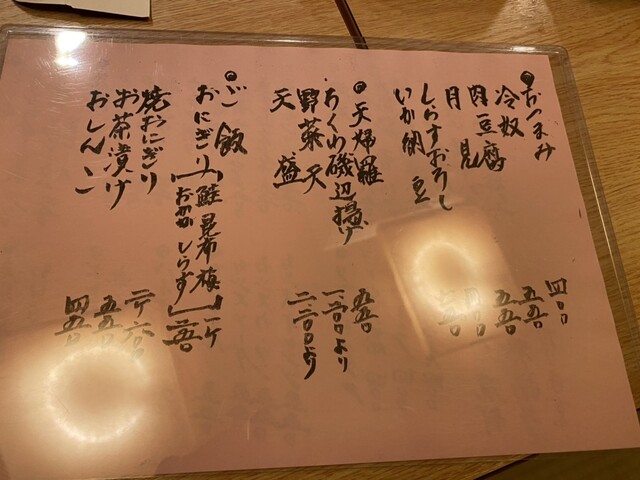 ◎おつまみ
冷奴 四〇〇
肉豆腐 五五〇
月見 五五〇
しらすおろし
いか納豆
◎天婦羅
ちくわ磯辺揚げ 五五〇
野菜天 より
天盛 より
◎ご飯
おにぎり「鮭 昆布 梅 一ケ
おかか しらす」 二五〇
焼おにぎり 二ケ 六〇〇
お茶漬け 五五〇
おしんこ 四五〇